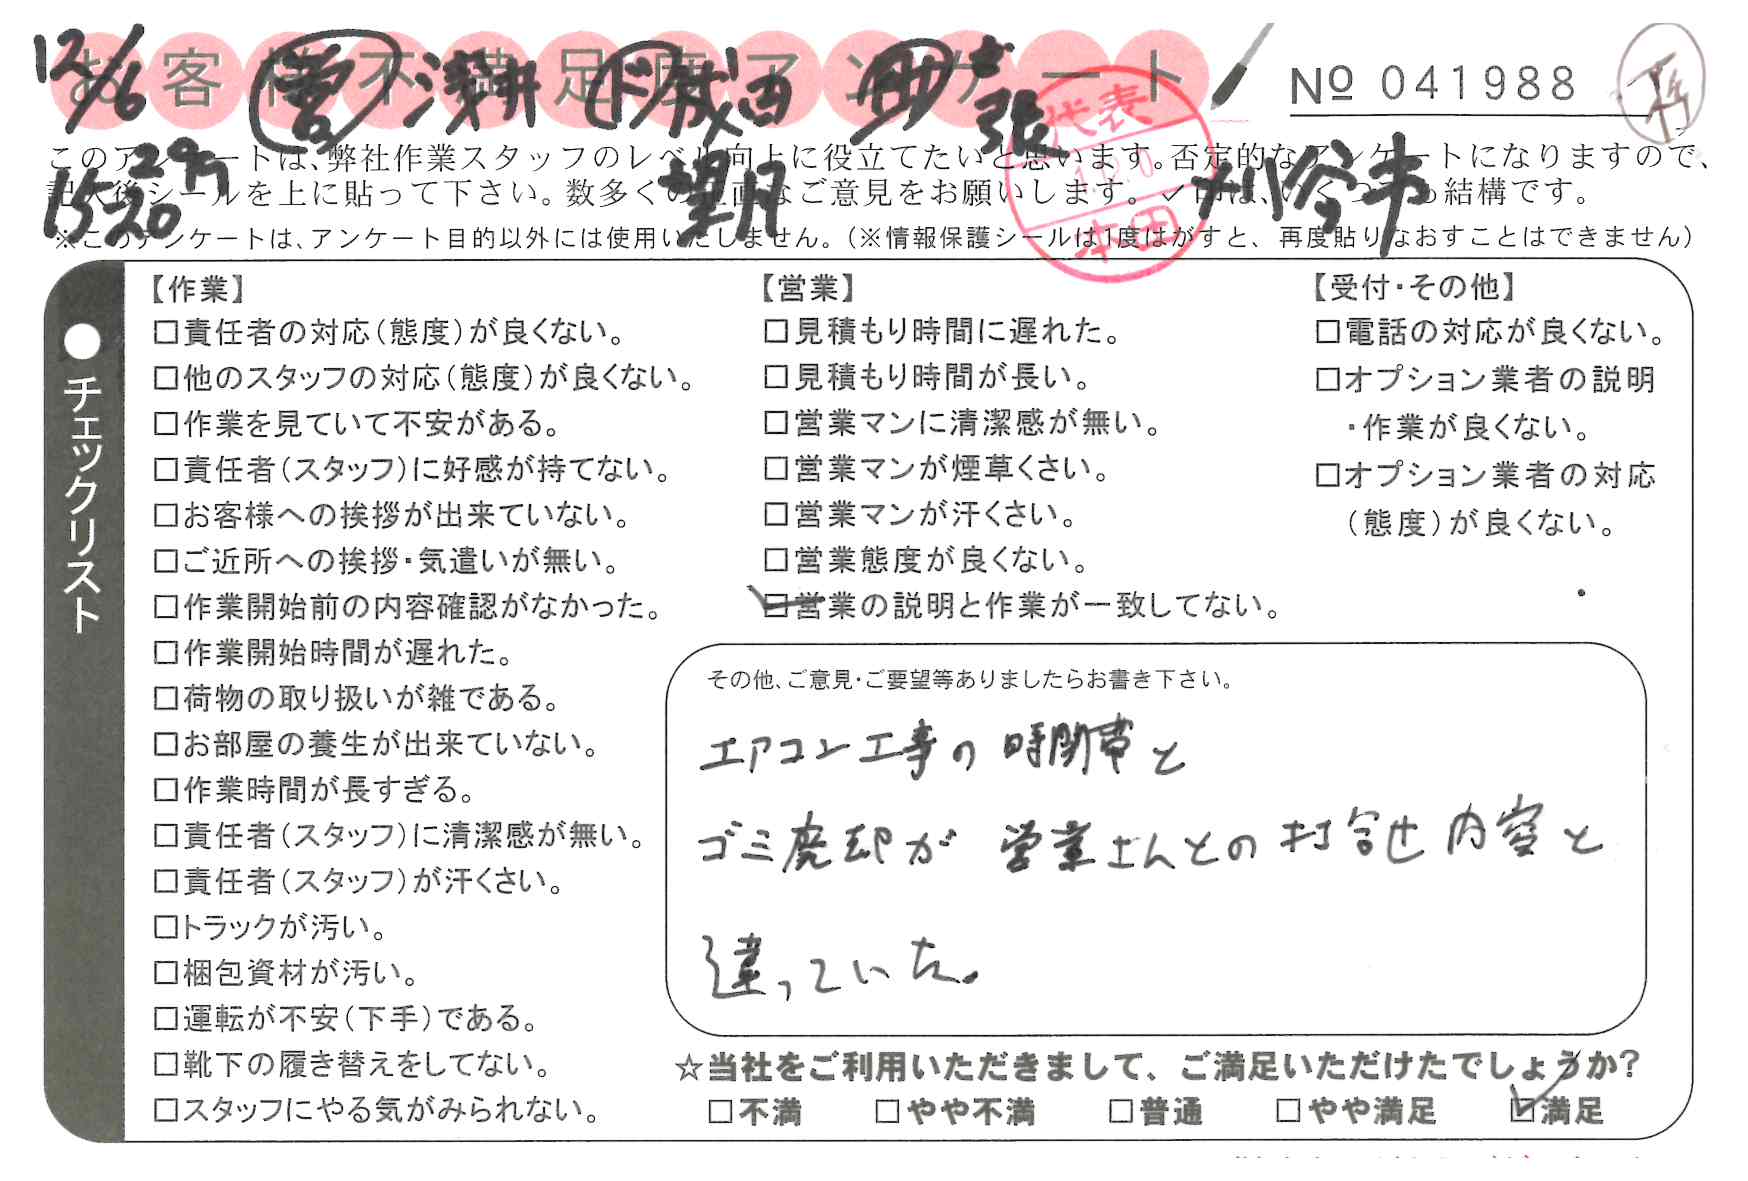 お客様不満足度アンケート
12/6
営 浅井
ド 成西
助
望月
Nº 041988
代表
本田
このアンケートは、弊社作業スタッフのレベル向上に役立てたいと思います。否定的なアンケートになりますので、
記入後シールを上に貼って下さい。数多くの正直なご意見をお願いします。✓印は、いくつでも結構です。
1520
刈谷市
※このアンケートは、アンケート目的以外には使用いたしません。（※情報保護シールは1度はがすと、再度貼りなおすことはできません）
●チェックリスト
【作業】
□責任者の対応（態度）が良くない。
□他のスタッフの対応（態度）が良くない。
□作業を見ていて不安がある。
□責任者（スタッフ）に好感が持てない。
□お客様への挨拶が出来ていない。
□ご近所への挨拶・気遣いが無い。
□作業開始前の内容確認がなかった。
□作業開始時間が遅れた。
□荷物の取り扱いが雑である。
□お部屋の養生が出来ていない。
□作業時間が長すぎる。
□責任者（スタッフ）に清潔感が無い。
□責任者（スタッフ）が汗くさい。
□トラックが汚い。
□梱包資材が汚い。
□運転が不安（下手）である。
□靴下の履き替えをしてない。
□スタッフにやる気がみられない。
【営業】
□見積もり時間に遅れた。
□見積もり時間が長い。
□営業マンに清潔感が無い。
□営業マンが煙草くさい。
□営業マンが汗くさい。
□営業態度が良くない。
☑営業の説明と作業が一致してない。
【受付・その他】
□電話の対応が良くない。
□オプション業者の説明
・作業が良くない。
□オプション業者の対応
（態度）が良くない。
その他、ご意見・ご要望等ありましたらお書き下さい。
エアコン工事の時間帯と
ゴミ廃却が 営業さんとの打合せ内容と
違っていた。
☆当社をご利用いただきまして、ご満足いただけたでしょうか？
□不満 □やや不満 □普通 □やや満足 ☑満足